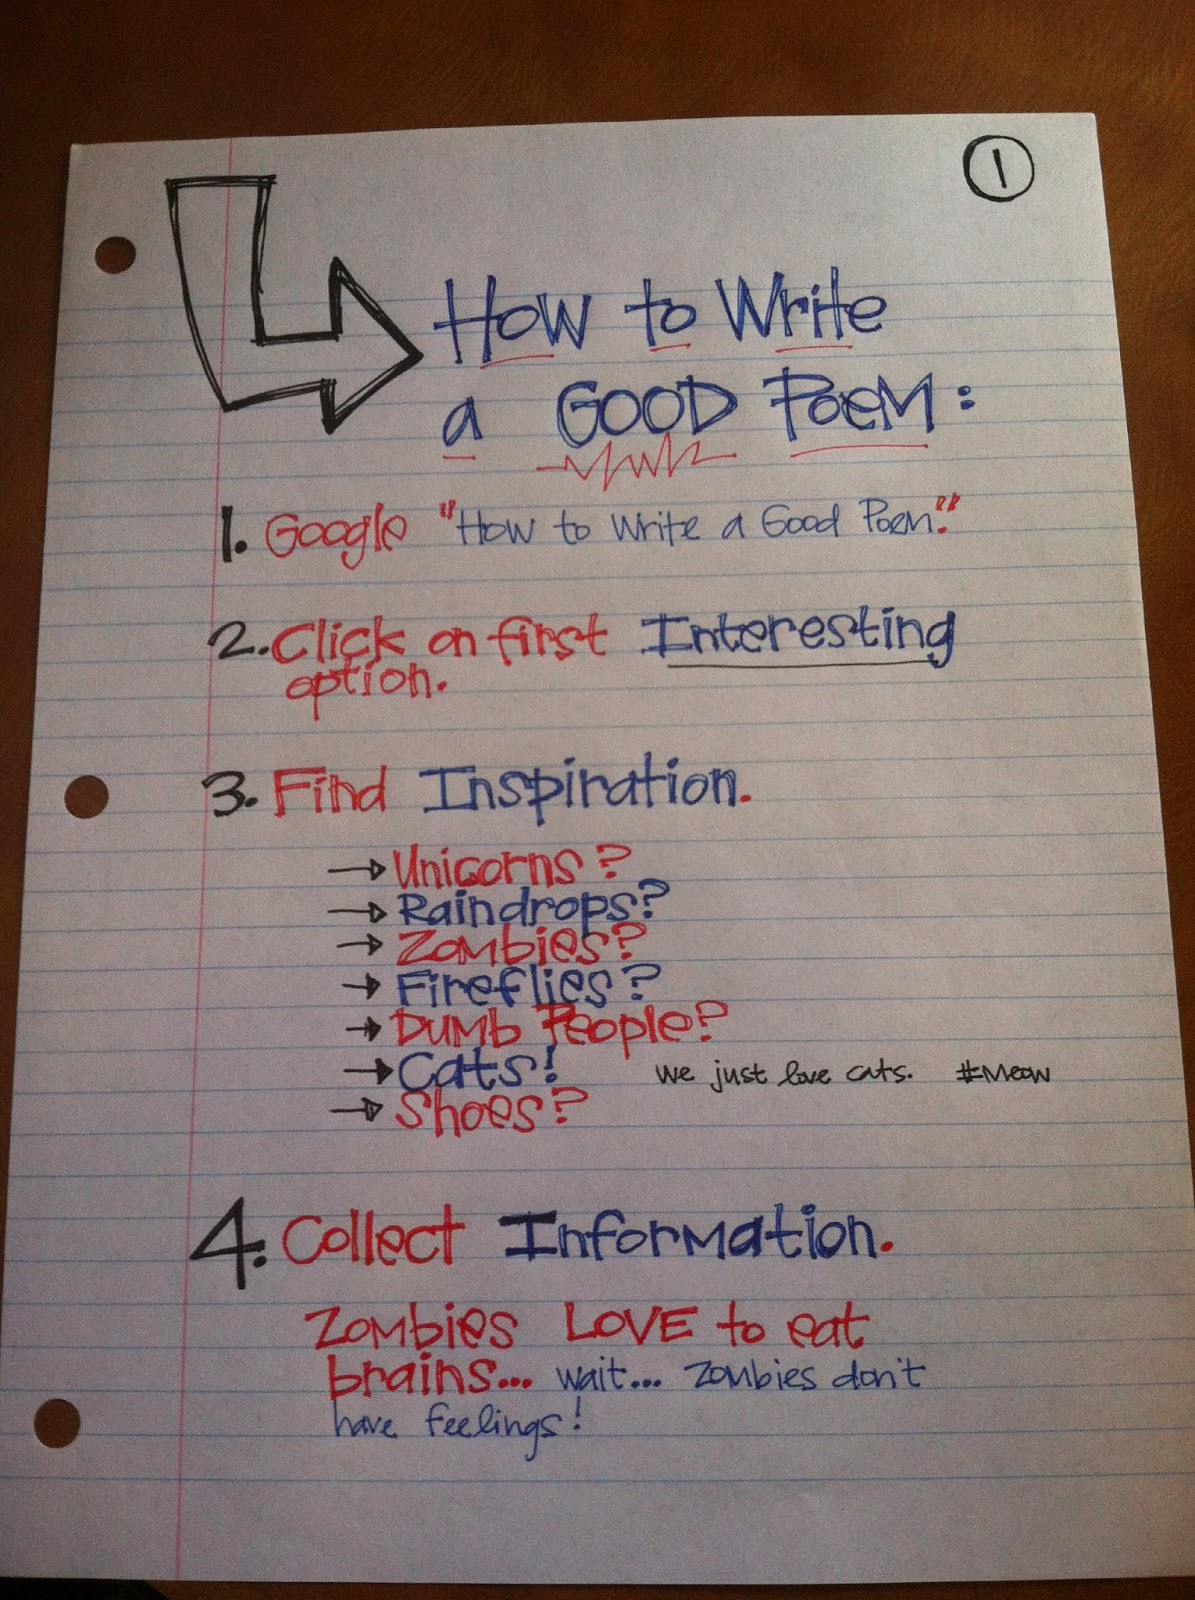 1
How to Write
a GOOD Poem:
1. Google "How to Write a Good Poem."
2. Click on first Interesting
option.
3. Find Inspiration.
→ Unicorns?
→ Raindrops?
→ Zombies?
→ Fireflies?
→ Dumb People?
→ Cats! We just love cats. #Meow
→ Shoes?
4. Collect Information.
Zombies LOVE to eat
brains... wait... Zombies don't
have feelings!